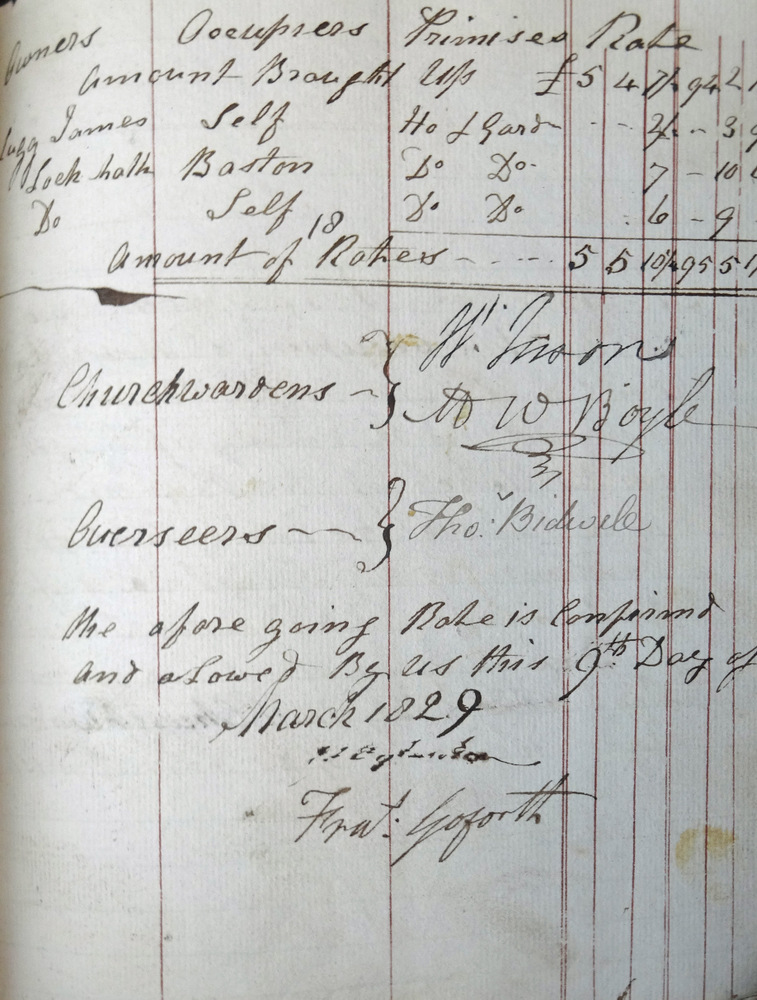 Owners Occupiers Primises Rate
Amount Brought Up £ 5 4 7½ 94 2 1
James Self Ho & Gardn - - 2/- - 3 9
Lock hath Baston Do Do 7 - 10
Do Self Do Do 6 - 9
18
Amount of Raters - - - - 5 5 10½ 95 5 1
Churchwardens } Wm
M W Boyle
Overseers } Thos. Bidwile
the afore going Rate is Confirmd
and alowed By us this 9th Day of
March 1829
Fras. Goforth